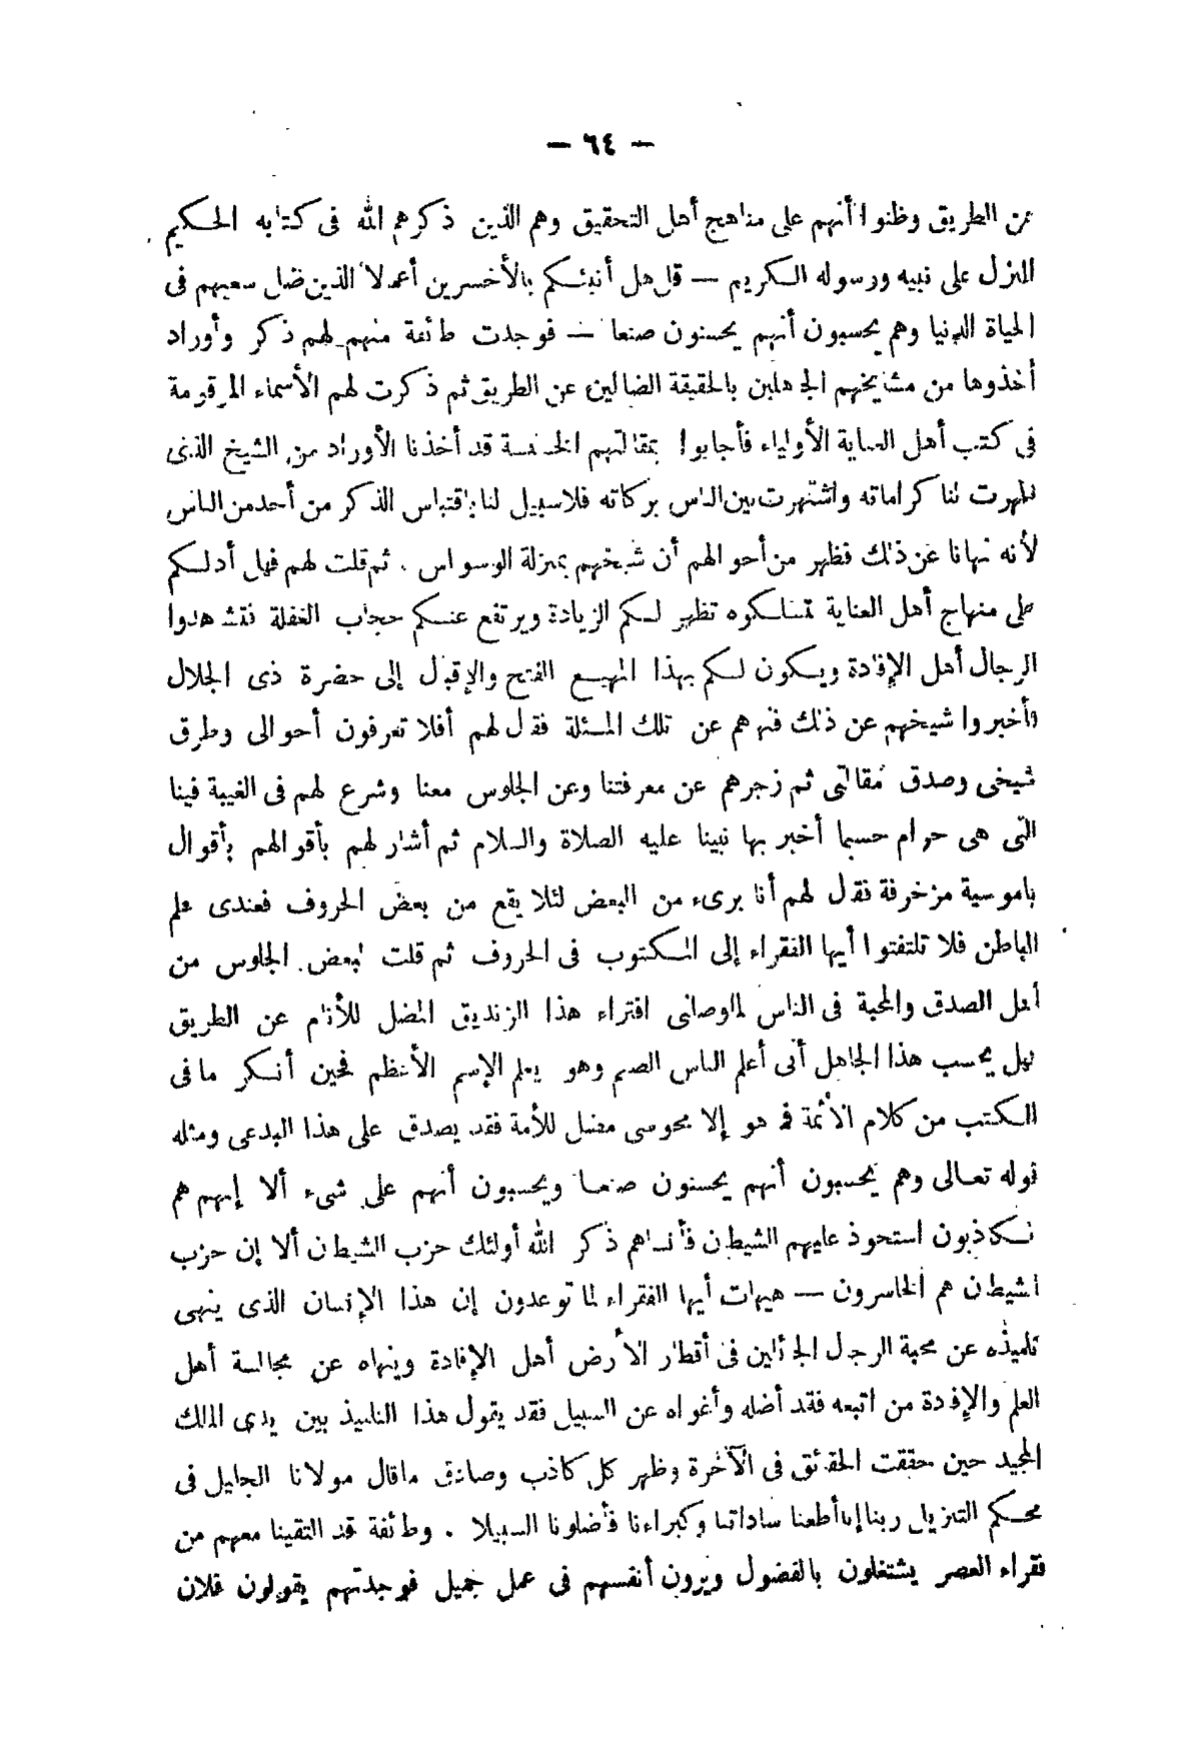 — ٦٤ —
عن الطريق وظنوا أنهم على مناهج أهل التحقيق وهم الذين ذكرهم الله فى كتابه الحكيم
المنزل على نبيه ورسوله الكريم — قل هل أنبئكم بالأخسرين أعمالا الذين ضل سعيهم فى
الحياة الدنيا وهم يحسبون أنهم يحسنون صنعا — فوجدت طائفة منهم لهم ذكر وأوراد
أخذوها من مشايخهم الجاهلين بالحقيقة الضالين عن الطريق ثم ذكرت لهم الأسماء المرقومة
فى كتب أهل العناية الأولياء فأجابوا بمقالتهم قد أخذنا الأوراد من الشيخ الذى
ظهرت لنا كراماته واشتهرت بين الناس بركاته فلا سبيل لنا باقتباس الذكر من أحد من الناس
لأنه نهانا عن ذلك فظهر من أحوالهم أن شيخهم بمنزلة الوسواس . ثم قلت لهم فهل أدلكم
على منهاج أهل العناية تمسلكوه تظهر لكم الزيادة ويرتفع عنكم حجاب الغفلة فتشاهدوا
الرجال أهل الإفادة ويكون لكم بهذا المهيع الفتح والإقبال إلى حضرة ذى الجلال
فأخبروا شيخهم عن ذلك فنهاهم عن تلك المسئلة فقال لهم أفلا تعرفون أحوالى وطرق
شيخى وصدق مقالتى ثم زجرهم عن معرفتنا وعن الجلوس معنا وشرع لهم فى الغيبة فينا
التى هى حرام حسبما أخبر بها نبينا عليه الصلاة والسلام ثم أشار لهم بأقوالهم بأقوال
ناموسية مزخرفة فقال لهم أنا برىء من البعض لئلا يقع من بعض الحروف فعندى علم
الباطن فلا تلتفتوا أيها الفقراء إلى المكتوب فى الحروف ثم قلت لبعض الجلوس من
أهل الصدق والمحبة فى الناس لما وصلنى افتراء هذا الزنديق المضل للأنام عن الطريق
فهل يحسب هذا الجاهل أنى أعلم الناس الصم وهو يعلم الإسم الأعظم فحين أنكر ما فى
الكتب من كلام الأئمة فما هو إلا مجوسى مضل للأمة فقد يصدق على هذا البدعى ومثله
قوله تعالى وهم يحسبون أنهم يحسنون صنعا ويحسبون أنهم على شىء ألا إنهم هم
الكاذبون استحوذ عليهم الشيطان فأنساهم ذكر الله أولئك حزب الشيطان ألا إن حزب
الشيطان هم الخاسرون — هيهات أيها الفقراء لما توعدون إن هذا الإنسان الذى ينهى
تلميذه عن محبة الرجال الجائلين فى أقطار الأرض أهل الإفادة وينهاه عن مجالسة أهل
العلم والإفادة من اتبعه فقد أضله وأغواه عن السبيل فقد يقول هذا التلميذ بين يدى المالك
المجيد حين حققت الحقائق فى الآخرة وظهر كل كاذب وصادق ما قال مولانا الجليل فى
محكم التنزيل ربنا إنا أطعنا ساداتنا وكبراءنا فأضلونا السبيلا . وطائفة قد التقينا معهم من
فقراء العصر يشتغلون بالفضول ويرون أنفسهم فى عمل جميل فوجدتهم يقولون فلان